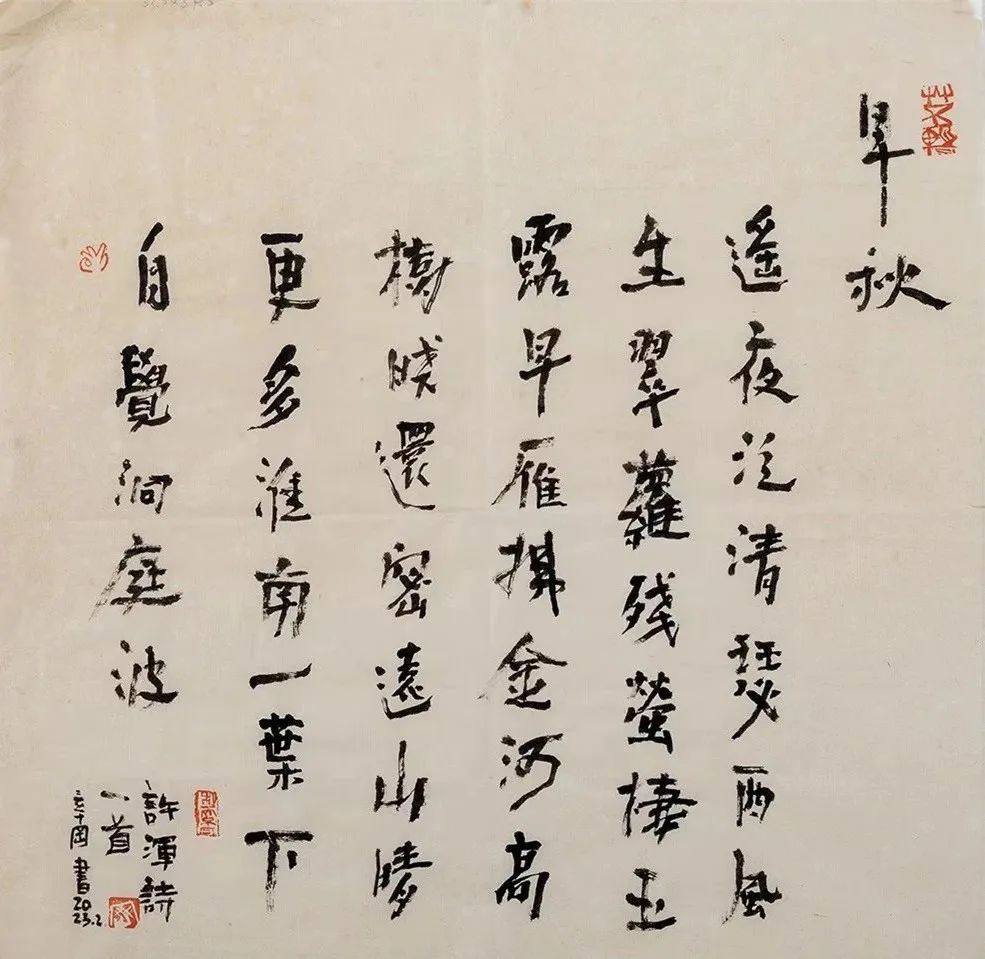 早秋
遥夜泛清瑟西風
生翠蘿殘螢棲玉
露早雁拂金河高
樹曉還密遠山晴
更多淮南一葉下
自覺洞庭波
許渾詩
一首
書2023.2